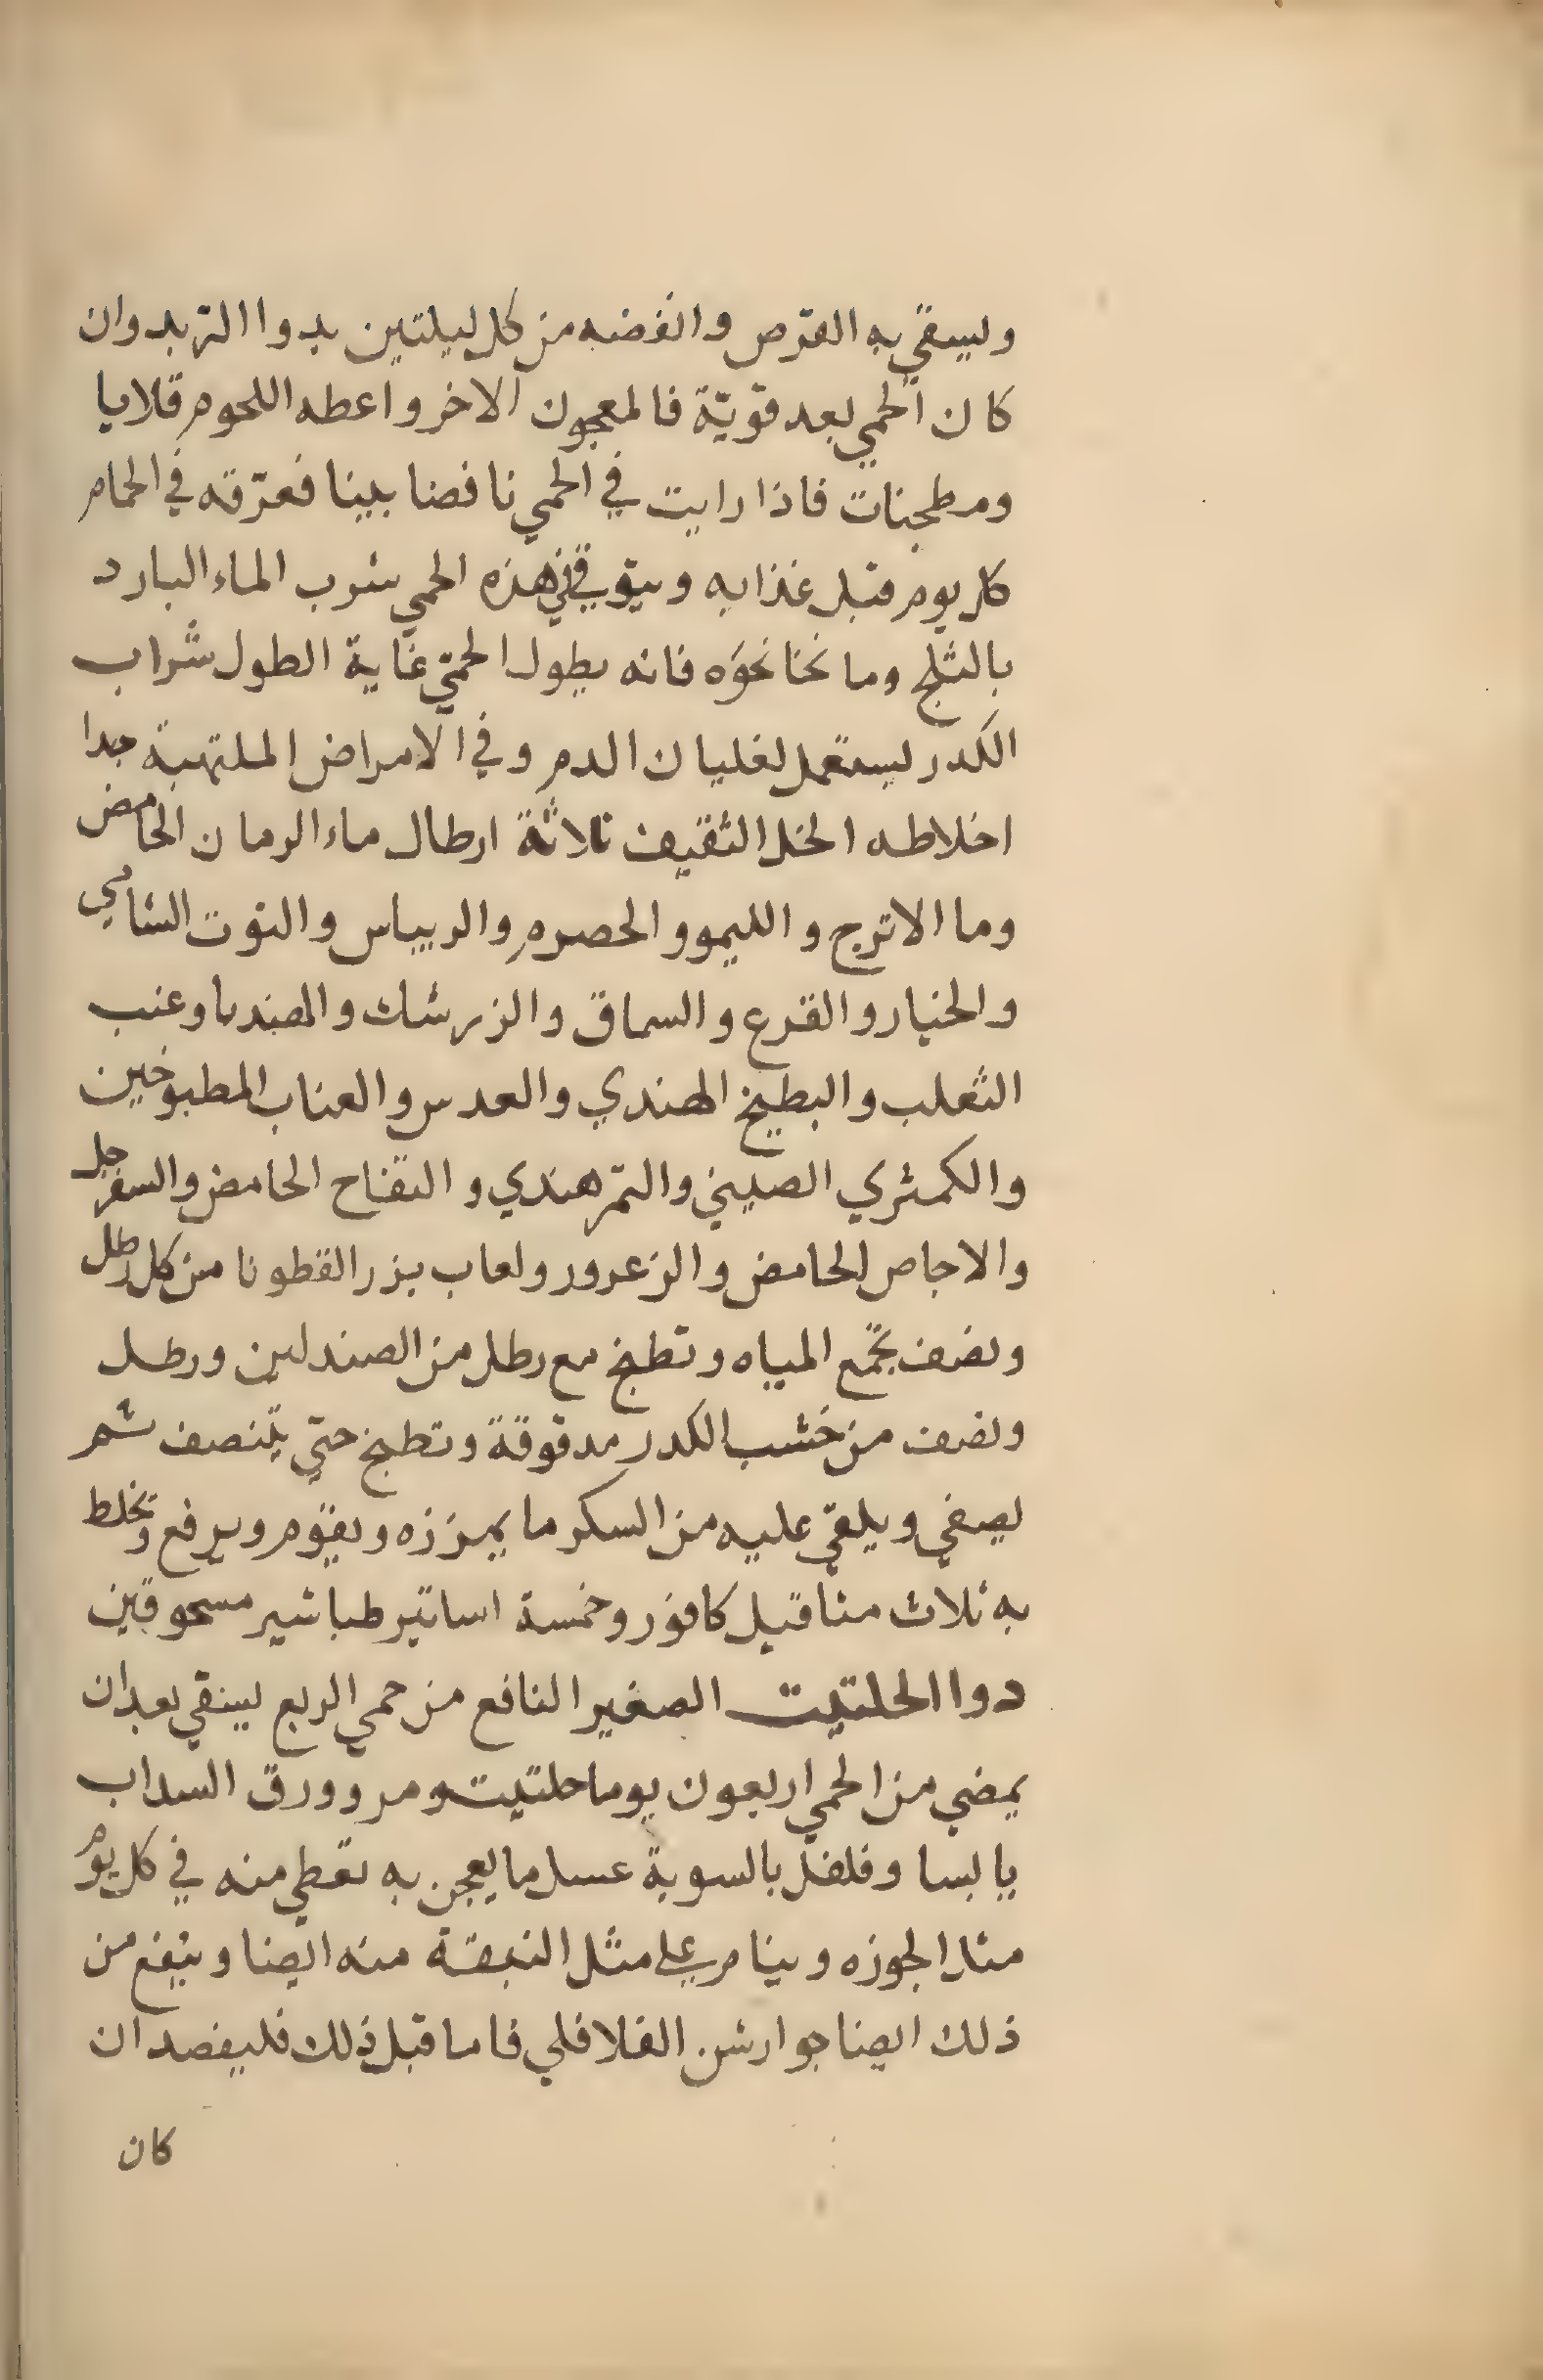 ويسقي به القرص وانفضه من كل ليلتين بدوا التربد وان
كان الحمي بعد قويّة فالمعجون الاخر واعطه اللحوم قلايا
ومطجنات فاذا رايت في الحمي نافضا بينا فعرّقه في الحمام
كل يوم قبل غذايه ويتوقي في هذه الحمي شرب الماء البارد
بالثلج وما نحا نحوَه فانه يطول الحمّي غاية الطول شراب
الكدر ليستعمل لغليان الدم وفي الامراض الملتهبة جدا
اخلاطه الخل الثقيف ثلاثة ارطال ماء الرمان الحامض
وما الاترج والليمو والحصرم والريباس والتوت الشامي
والخيار والقرع والسماق والزرشك والهندبا وعنب
الثعلب والبطيخ الهندي والعدس والعناب المطبوخين
والكمثري الصيني والتمر هندي والتفاح الحامض والسفرجل
والاجاص الحامض والزعرور ولعاب بزر القطونا من كل رطل
ونصف تجمع المياه وتطبخ مع رطل من الصندلين ورطل
ونصف من خشب الكدر مدقوقة وتطبخ حتي يتنصف ثم
يصفي ويلقي عليه من السكر ما يمززه ويقوم ويرفع وتخلط
به ثلاث مثاقيل كافور وخمسة اساتير طباشير مسحوقين
دوا الحلتيت الصغير النافع من حمي الربع يسقي بعد ان
يمضي من الحمي اربعون يوما حلتيت ومر وورق السداب
يابسا وفلفل بالسوية عسل ما يعجن به تعطي منه في كل يوم
مثل الجوزه وينام علي مثل النبقة منه ايضا وينفع من
ذلك ايضا جوارشن الفلافلي فاما قبل ذلك فليفصد ان
كان